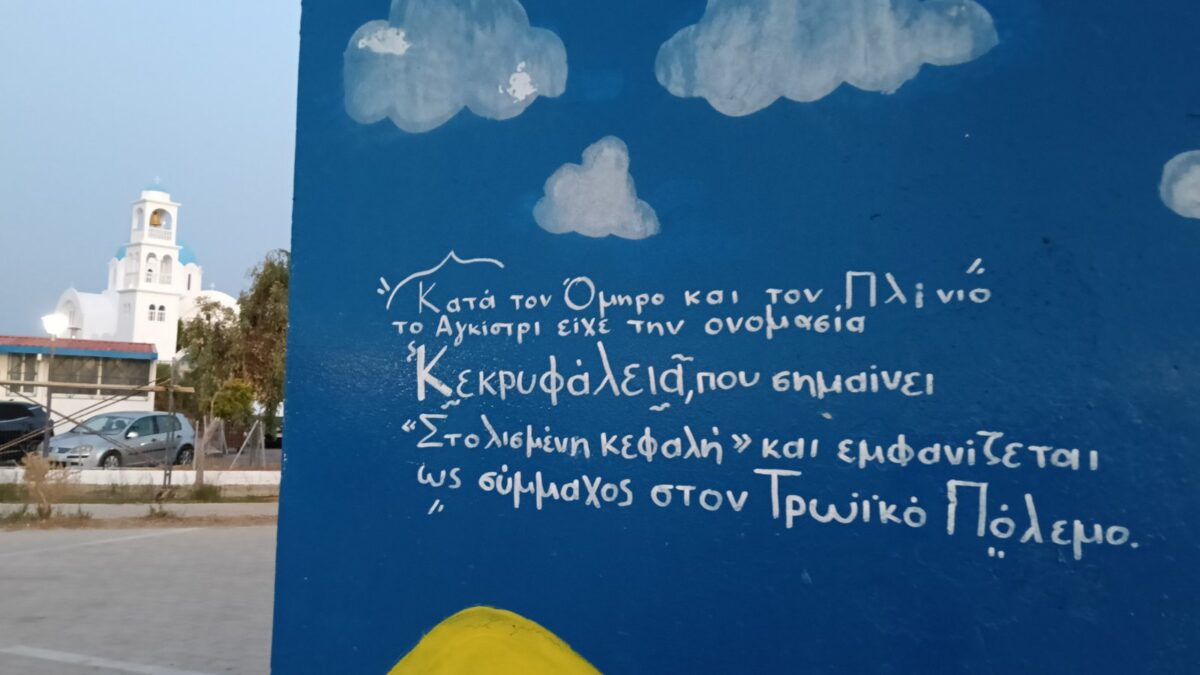 Κατά τον Όμηρο και τον Πλίνιο
το Αγκίστρι είχε την ονομασία
Κεκρυφάλεια, που σημαίνει
“Στολισμένη κεφαλή” και εμφανίζεται
ως σύμμαχος στον Τρωϊκό Πόλεμο.